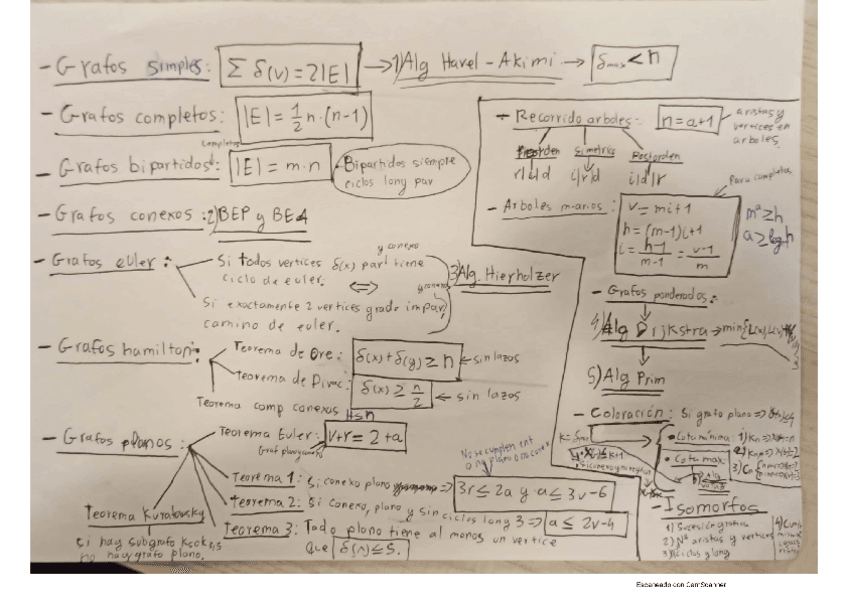 - Grafos simples: Σ δ(v) = 2|E| → 1) Alg Havel - Akimi → δmax < n
- Grafos completos: |E| = 1/2 n · (n-1)
completos
- Grafos bipartidos: |E| = m · n
Bipartidos siempre
ciclos long par
- Grafos conexos: 2) BEP y BEA
- Grafos euler:
y conexo
Si todos vertices δ(x) par tiene
ciclo de euler. ⟺
Si exactamente 2 vertices grado impar,
camino de euler.
3) Alg. Hierholzer
- Grafos hamilton:
Teorema de Ore: δ(x) + δ(y) ≥ n ← sin lazos
Teorema de Dirac: δ(x) ≥ n/2 ← sin lazos
Teorema comp conexos
- Grafos planos:
Teorema Euler: v+r = 2+a
Teorema 1: Si conexo plano ⇒ 3r ≤ 2a y a ≤ 3v-6
Teorema 2: Si conexo, plano y sin ciclos long 3 ⇒ a ≤ 2v-4
Teorema 3: Todo plano tiene al menos un vertice
que δ(v) ≤ 5.
Teorema Kuratowsky
si hay subgrafo
no hay grafo plano.
- Recorrido arboles: n = a+1
aristas y
vertices en
arboles.
Preorden Simetrico Postorden
r/i/d i/r/d i/d/r
Para completos
- Arboles m-arios: v = mi+1
h = (m-1)i+1
i = h-1/m-1 = v-1/m
mᵃ ≥ h
a ≥ log h
- Grafos ponderados:
4) Alg Dijkstra → min{
5) Alg Prim
- Coloración: Si grafo plano ⇒
• Cota minima: 1)
• Cota max:
- Isomorfos
1) Sucesión grafica
2) Nª aristas y vertices
3) Ciclos y long
Escaneado con CamScanner